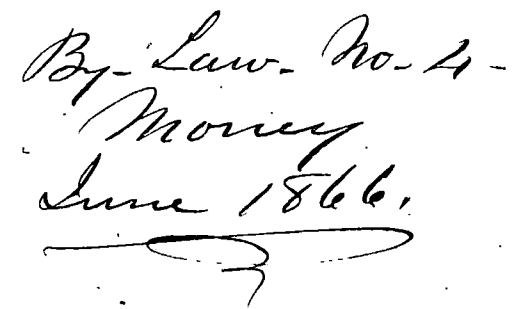 By-Law-No-4-
Money
June 1866.